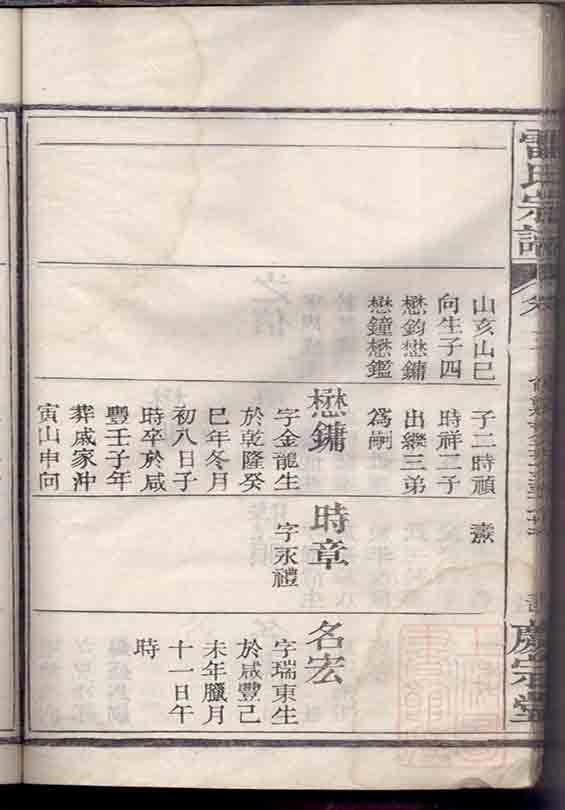 雷氏宗譜
慶宗堂
山亥山巳
向生子四
懋鈞懋鏞
懋鐘懋鑑
子二時禎
時祥二子
出繼三弟
爲嗣
懋鏞
字金龍生
於乾隆癸
巳年冬月
初八日子
時卒於咸
豐壬子年
葬戚家沖
寅山申向
燾
時章
字永禮
名宏
字瑞東生
於咸豐己
未年臘月
十一日午
時